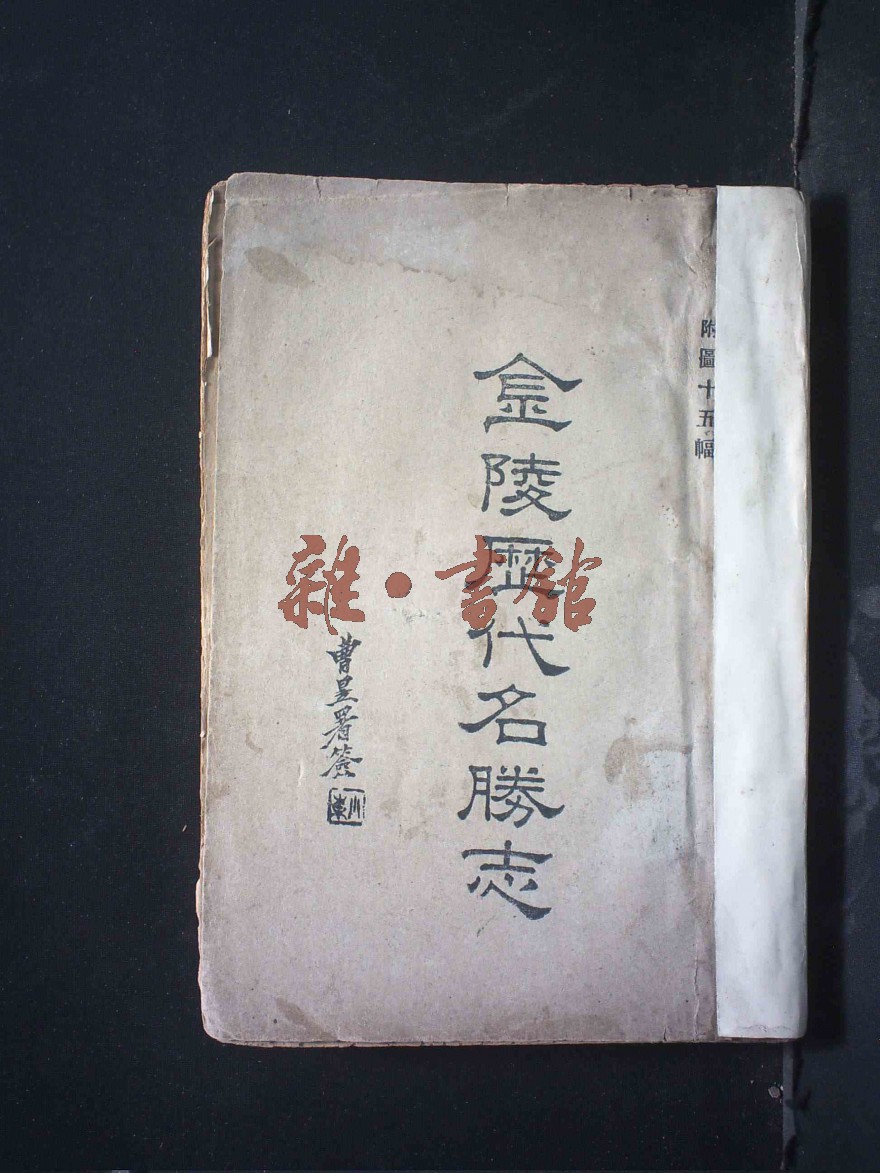 附圖十五幅
金陵歷代名勝志
曹昱署簽
雜·書館